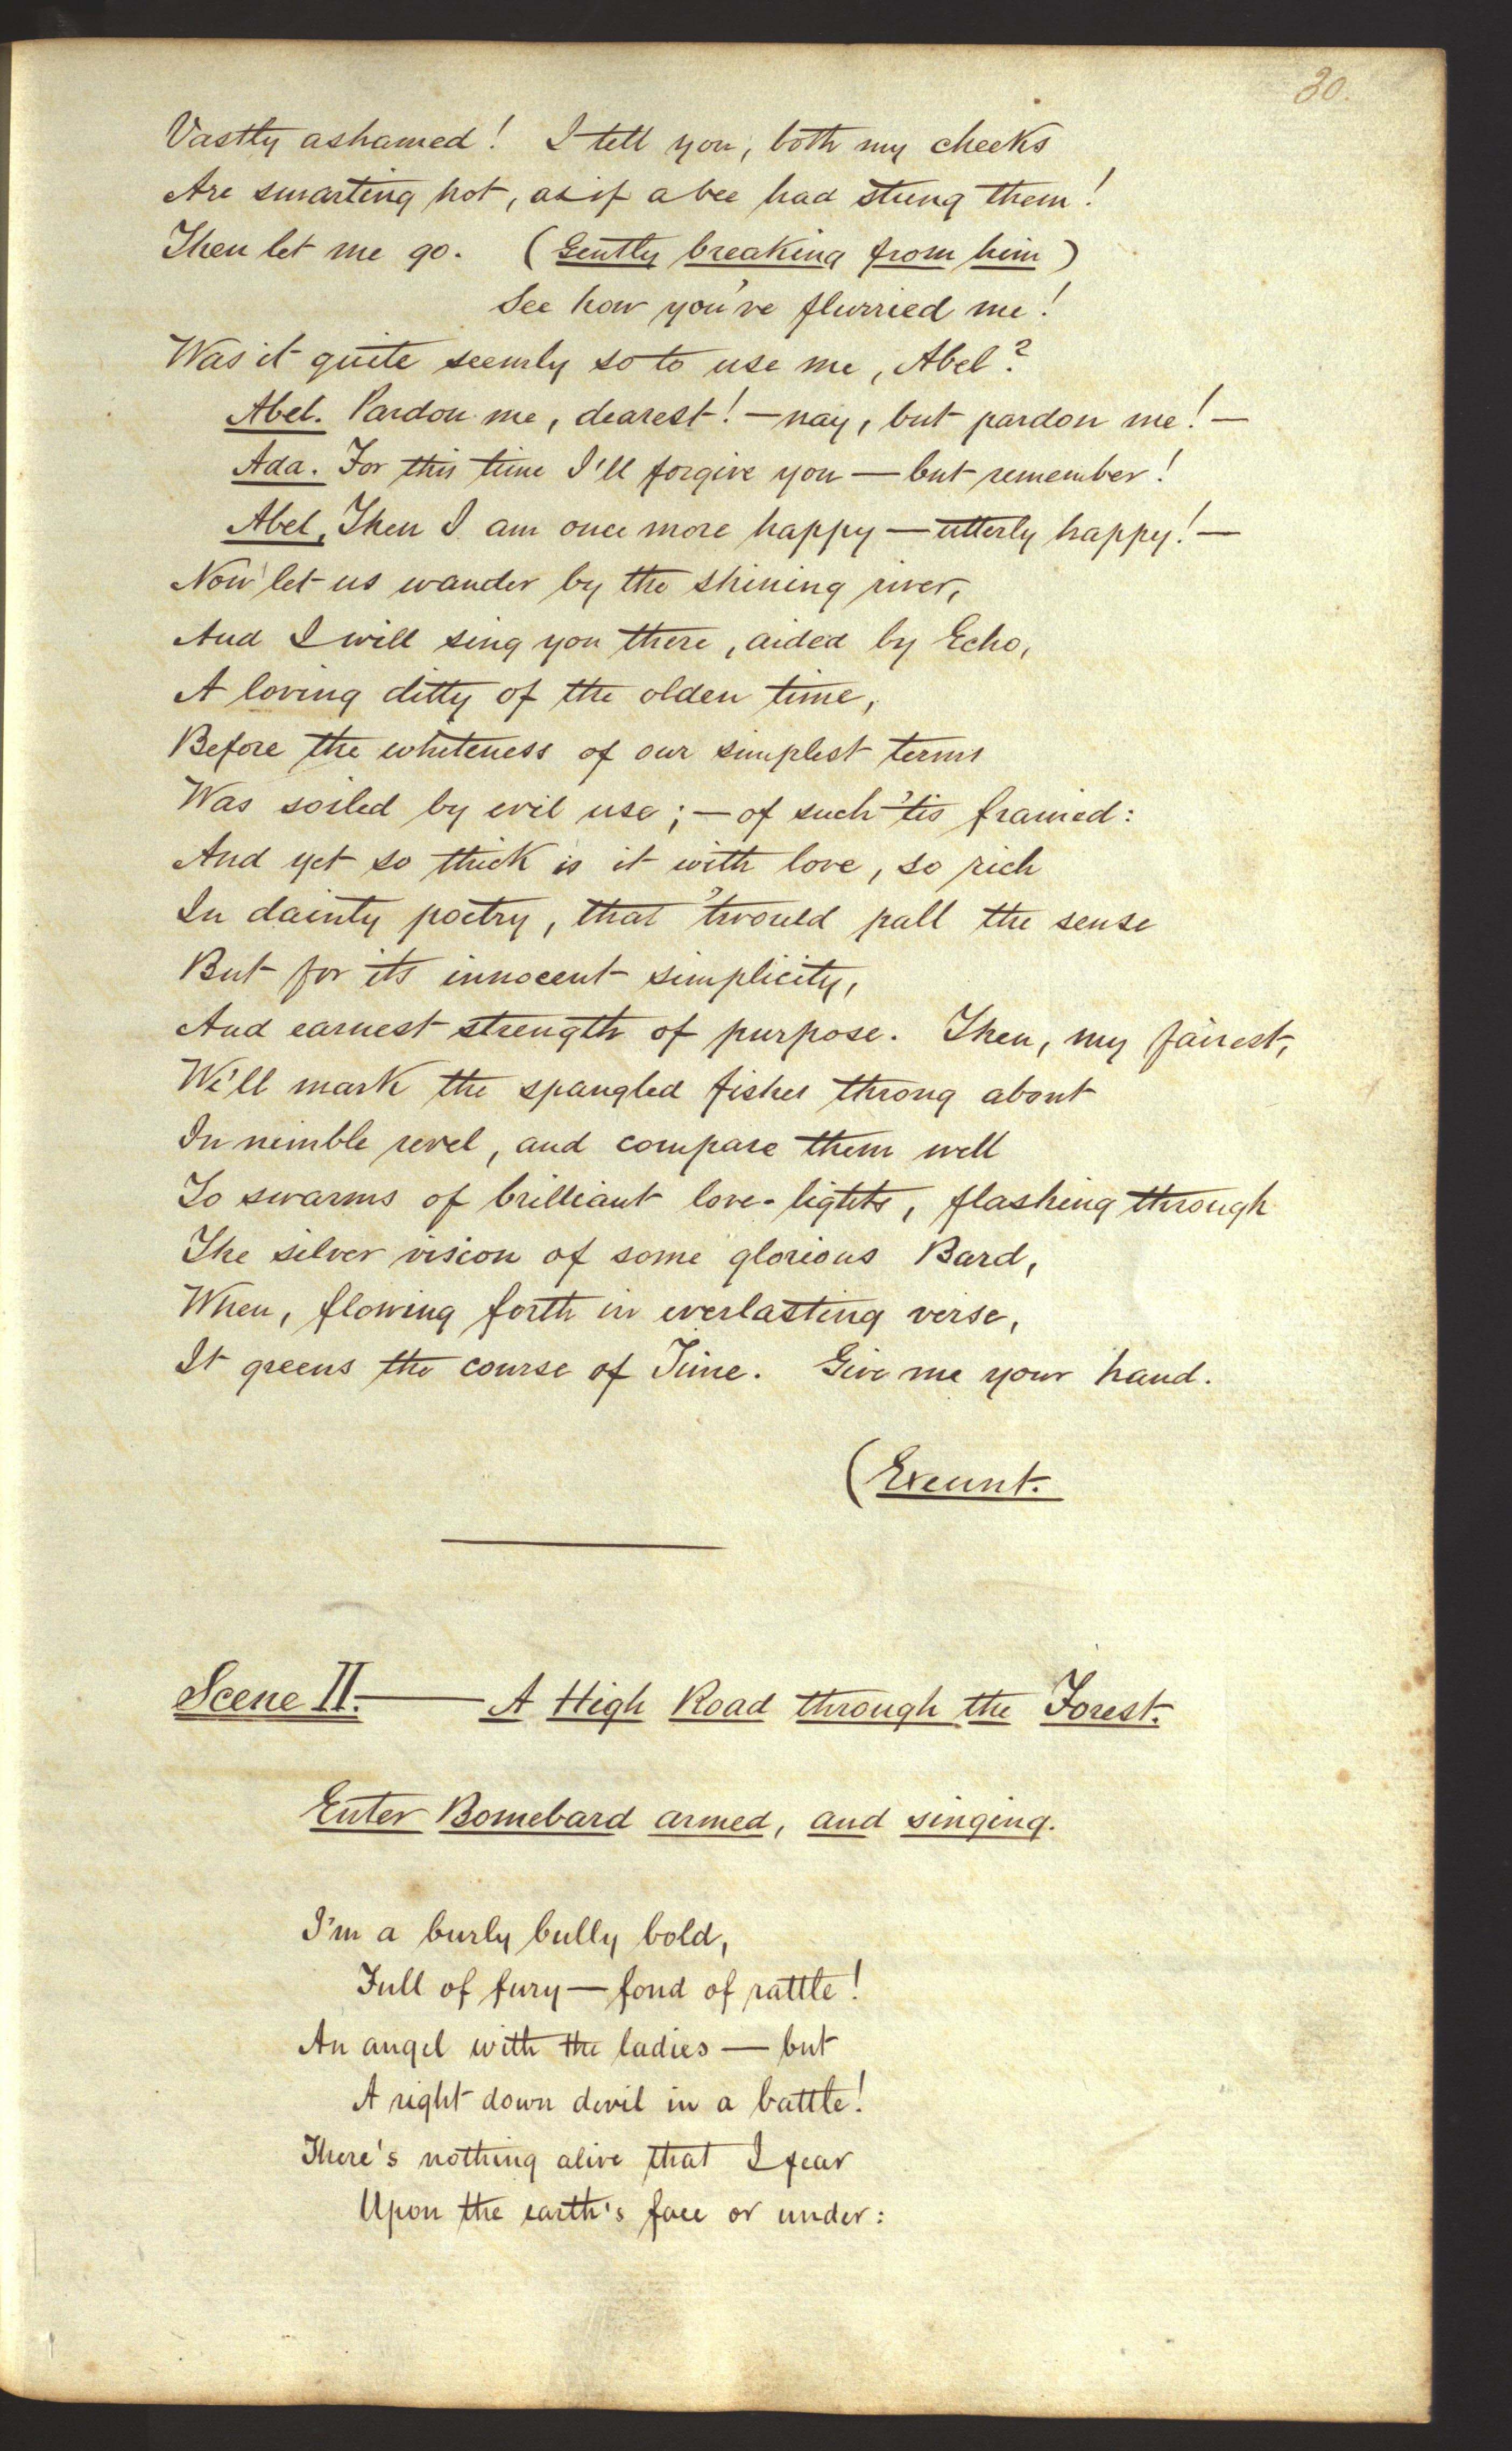 30.
Vastly ashamed! I tell you, both my cheeks
Are smarting hot, as if a bee had stung them!
Then let me go. (Gently breaking from him)
See how you've flurried me!
Was it quite seemly so to use me, Abel?
Abel. Pardon me, dearest! — nay, but pardon me! —
Ada. For this time I'll forgive you — but remember!
Abel, Then I am once more happy — utterly happy! —
Now let us wander by the shining river,
And I will sing you there, aided by Echo,
A loving ditty of the olden time,
Before the whiteness of our simplest terms
Was soiled by evil use; — of such 'tis framed:
And yet so thick is it with love, so rich
In dainty poetry, that 'twould pall the sense
But for its innocent simplicity,
And earnest strength of purpose. Then, my fairest,
We'll mark the spangled fishes throng about
In nimble revel, and compare them well
To swarms of brilliant love-lights, flashing through
The silver vision of some glorious Bard,
When, flowing forth in everlasting verse,
It greens the course of Time. Give me your hand.
(Exeunt.
Scene II. — A High Road through the Forest.
Enter Bomebard armed, and singing.
I'm a burly bully bold,
Full of fury — fond of rattle!
An angel with the ladies — but
A right down devil in a battle!
There's nothing alive that I fear
Upon the earth's face or under: